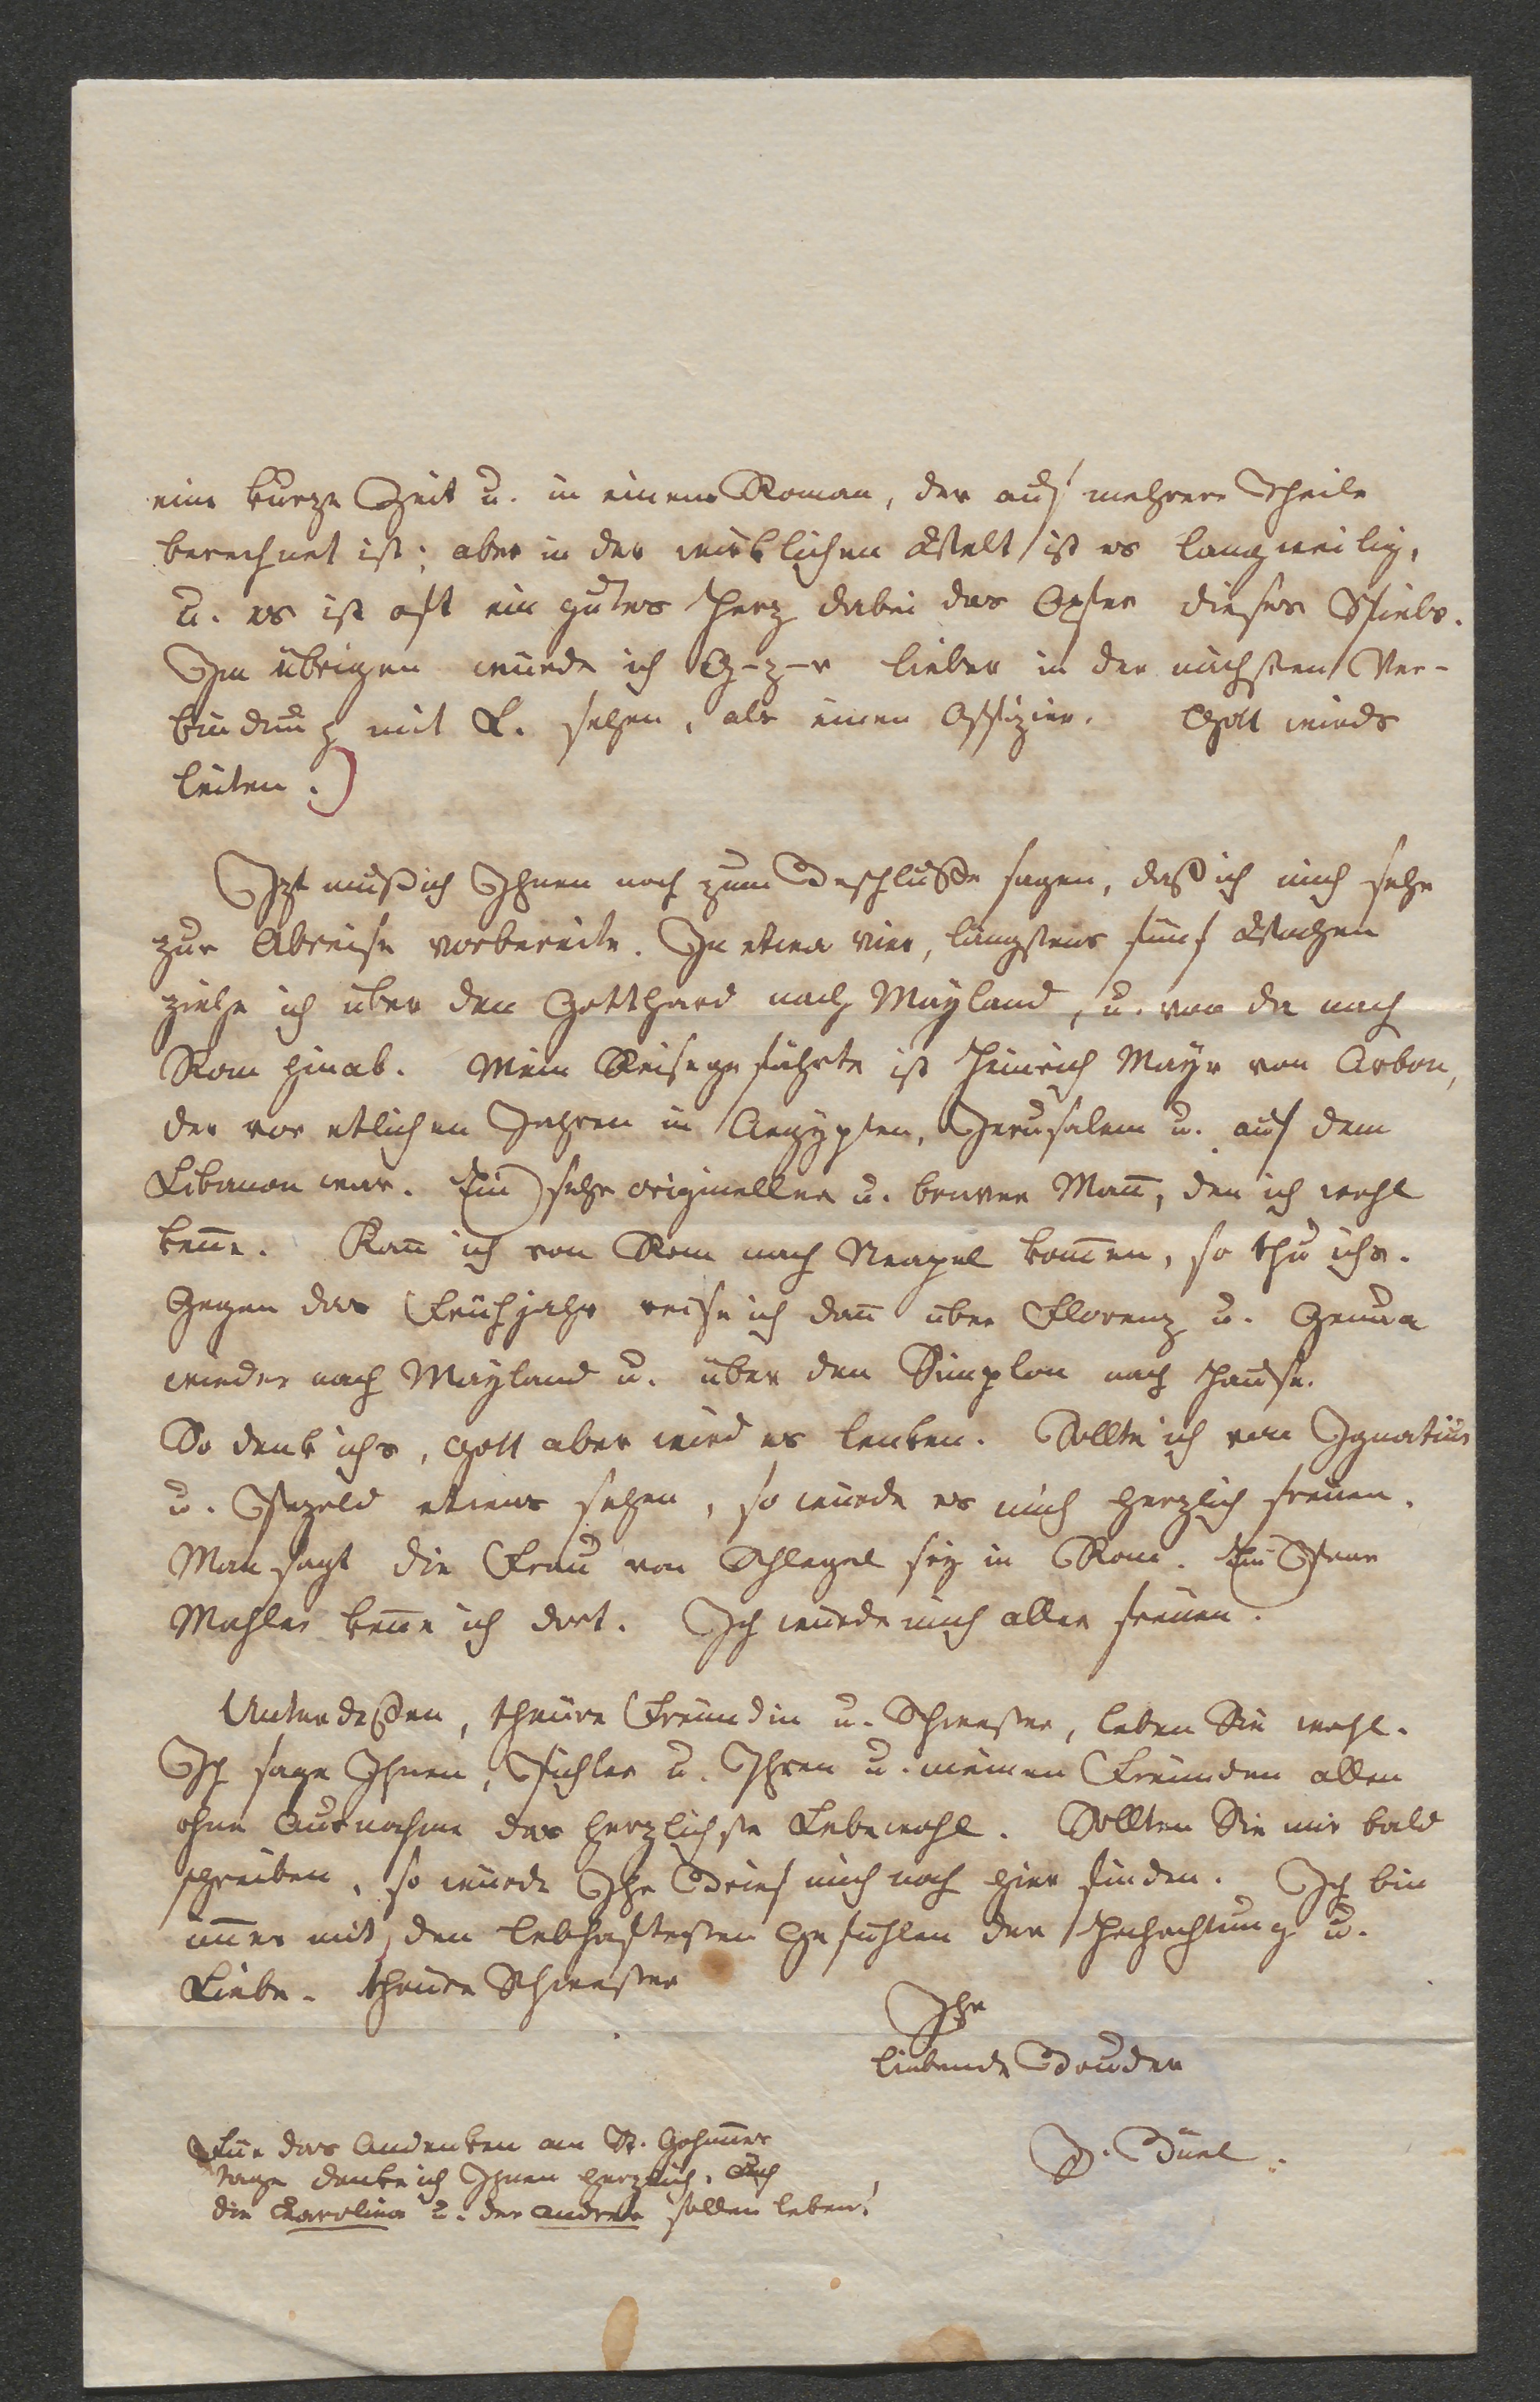 eine kurze Zeit u. in einem Roman, der auf mehrere Theile
berechnet ist; aber in der wirklichen Welt ist es langweilig,
u. es ist oft ein gutes Herz dabei das Opfer dieses Spiels.
Im übrigen würde ich G-z-r lieber in der nächsten Ver-
bindung mit L. sehen, als einen Offizier. Gott wirds
leiten.)
Izt muß ich Ihnen noch zum Beschluße sagen, daß ich mich sehr
zur Abreise vorbereite. In etwa vier, längstens fünf Wochen
ziehe ich über den Gotthard nach Mayland, u. von da nach
Rom hinab. Mein Reisegefährte ist Heinrich Mayr von Arbon,
der vor etlichen Jahren in Aegypten, Jerusalem u. auf dem
Libanon war. Ein sehr origineller u. braver Mañ, den ich wohl
keñe. Kañ ich von Rom nach Neapel kom̄en, so thu ichs.
Gegen das Frühjahr reise ich dañ über Florenz u. Genua
wieder nach Mayland u. über den Simplon nach Hause.
So denk ichs, Gott aber wird es lenken. Sollte ich von Ignatius
u. Pezold etwas sehen, so würde es mich herzlich freuen.
Man sagt die Frau von Schlegel sey in Rom. Ein Paar
Mahler keñe ich dort. Ich würde mich aller freuen.
Unterdeßen, theure Freundin u. Schwester, leben Sie wohl.
Ich sage Ihnen, Pichler u. Ihren u. meinen Freunden allen
ohne Ausnahme das herzlichste Lebewohl. Sollten Sie mir bald
schreiben, so würde Ihr Brief mich noch hier finden. Ich bin
im̄er mit den lebhaftesten Gefühlen der Hochachtung u.
Liebe. theure Schwester
Ihr
liebende Bruder
J. Büel.
Für das Andenken am St. Johañes
tage danke ich Ihnen herzlich. Auch
die Karolina u. der Andreas sollen leben!